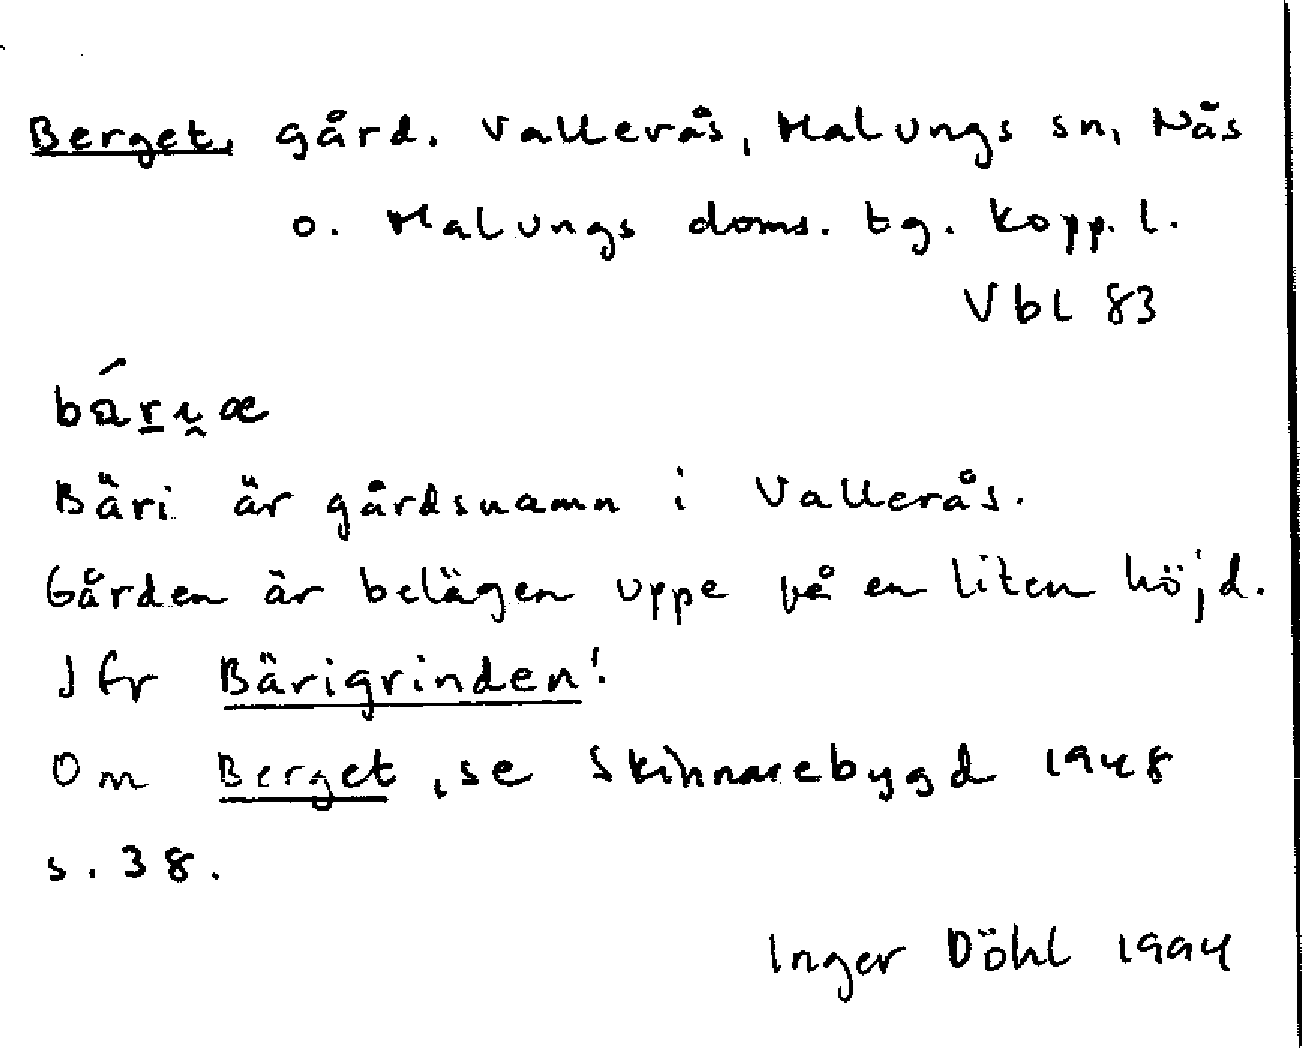 Berget, gård. Vallerås, Malungs sn, Nås
o. Malungs doms. tg. Kopp. l.
Vbl 83
Bäri är gårdsnamn i Vallerås.
Gården är belägen uppe på en liten höjd.
Jfr Bärigrinden!
Om Berget, se Skinnarebygd 1948
s. 38.
Inger Döhl 1994